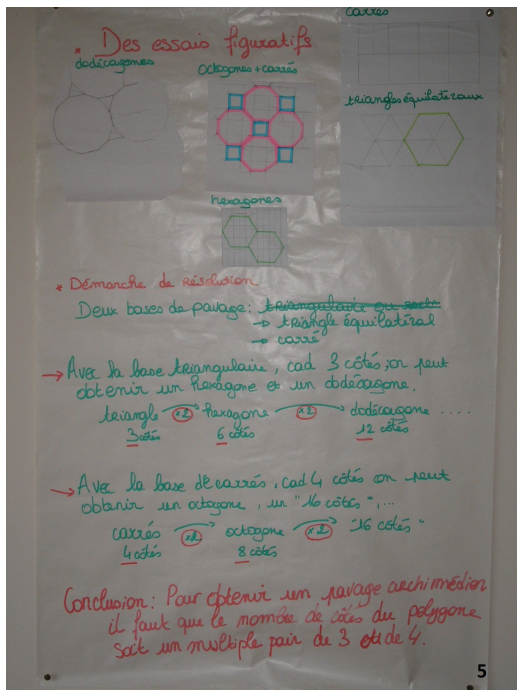 * Des essais figuratifs
dodécagones
octogones + carrés
carrés
triangles équilatéraux
hexagones
* Démarche de résolution
Deux bases de pavage : triangulaire ou
→ triangle équilatéral
→ carré
→ Avec la base triangulaire, cad 3 côtés, on peut
obtenir un hexagone et un dodécagone.
triangle ×2 hexagone ×2 dodécagone ....
3 côtés 6 côtés 12 côtés
→ Avec la base de carrés, cad 4 côtés on peut
obtenir un octogone, un "16 côtés", ...
carrés ×2 octogone ×2 "16 côtés"
4 côtés 8 côtés
Conclusion : Pour obtenir un pavage archimédien
il faut que le nombre de côtés du polygone
soit un multiple pair de 3 et de 4.
5